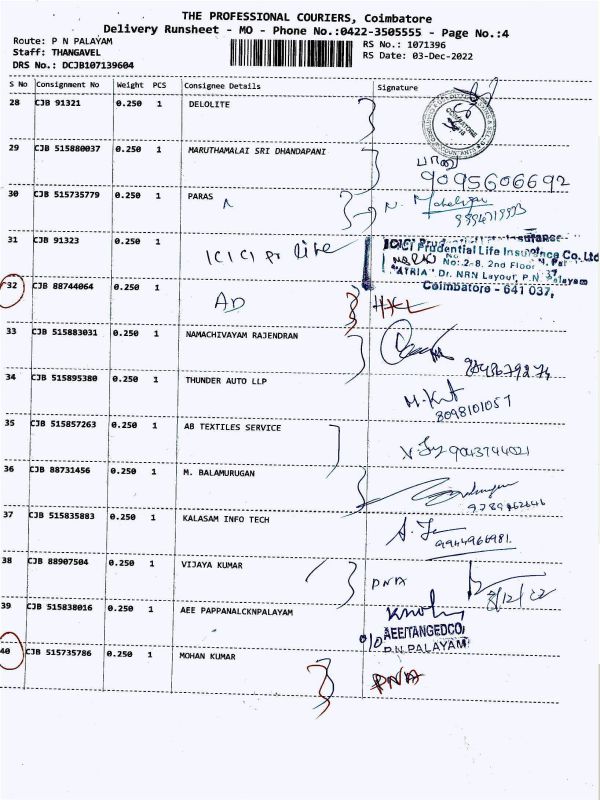 THE PROFESSIONAL COURIERS, Coimbatore
Delivery Runsheet - MO - Phone No.:0422-3505555 - Page No.:4
Route: P N PALAYAM
RS No.: 1071396
Staff: THANGAVEL
RS Date: 03-Dec-2022
DRS No.: DCJB107139604
S No Consignment No Weight PCS Consignee Details Signature
28 CJB 91321 0.250 1 DELOLITE
29 CJB 515880037 0.250 1 MARUTHAMALAI SRI DHANDAPANI
9095606692
30 CJB 515735779 0.250 1 PARAS
31 CJB 91323 0.250 1 ICICI Pr life
ICICI Prudential Life Insurance Co. Ltd
No:2-8, 2nd Floor
"ATRIA" Dr. NRN Layout, P.N. Palayam
Coimbatore - 641 037,
32 CJB 88744064 0.250 1 AD
33 CJB 515883031 0.250 1 NAMACHIVAYAM RAJENDRAN
34 CJB 515895380 0.250 1 THUNDER AUTO LLP
8098101057
35 CJB 515857263 0.250 1 AB TEXTILES SERVICE
9043744021
36 CJB 88731456 0.250 1 M. BALAMURUGAN
37 CJB 515835883 0.250 1 KALASAM INFO TECH
9944966981
38 CJB 88907504 0.250 1 VIJAYA KUMAR
DNA
8/12/22
39 CJB 515838016 0.250 1 AEE PAPPANALCKNPALAYAM
AEE/TANGEDCO/
P.N PALAYAM
40 CJB 515735786 0.250 1 MOHAN KUMAR
DNA